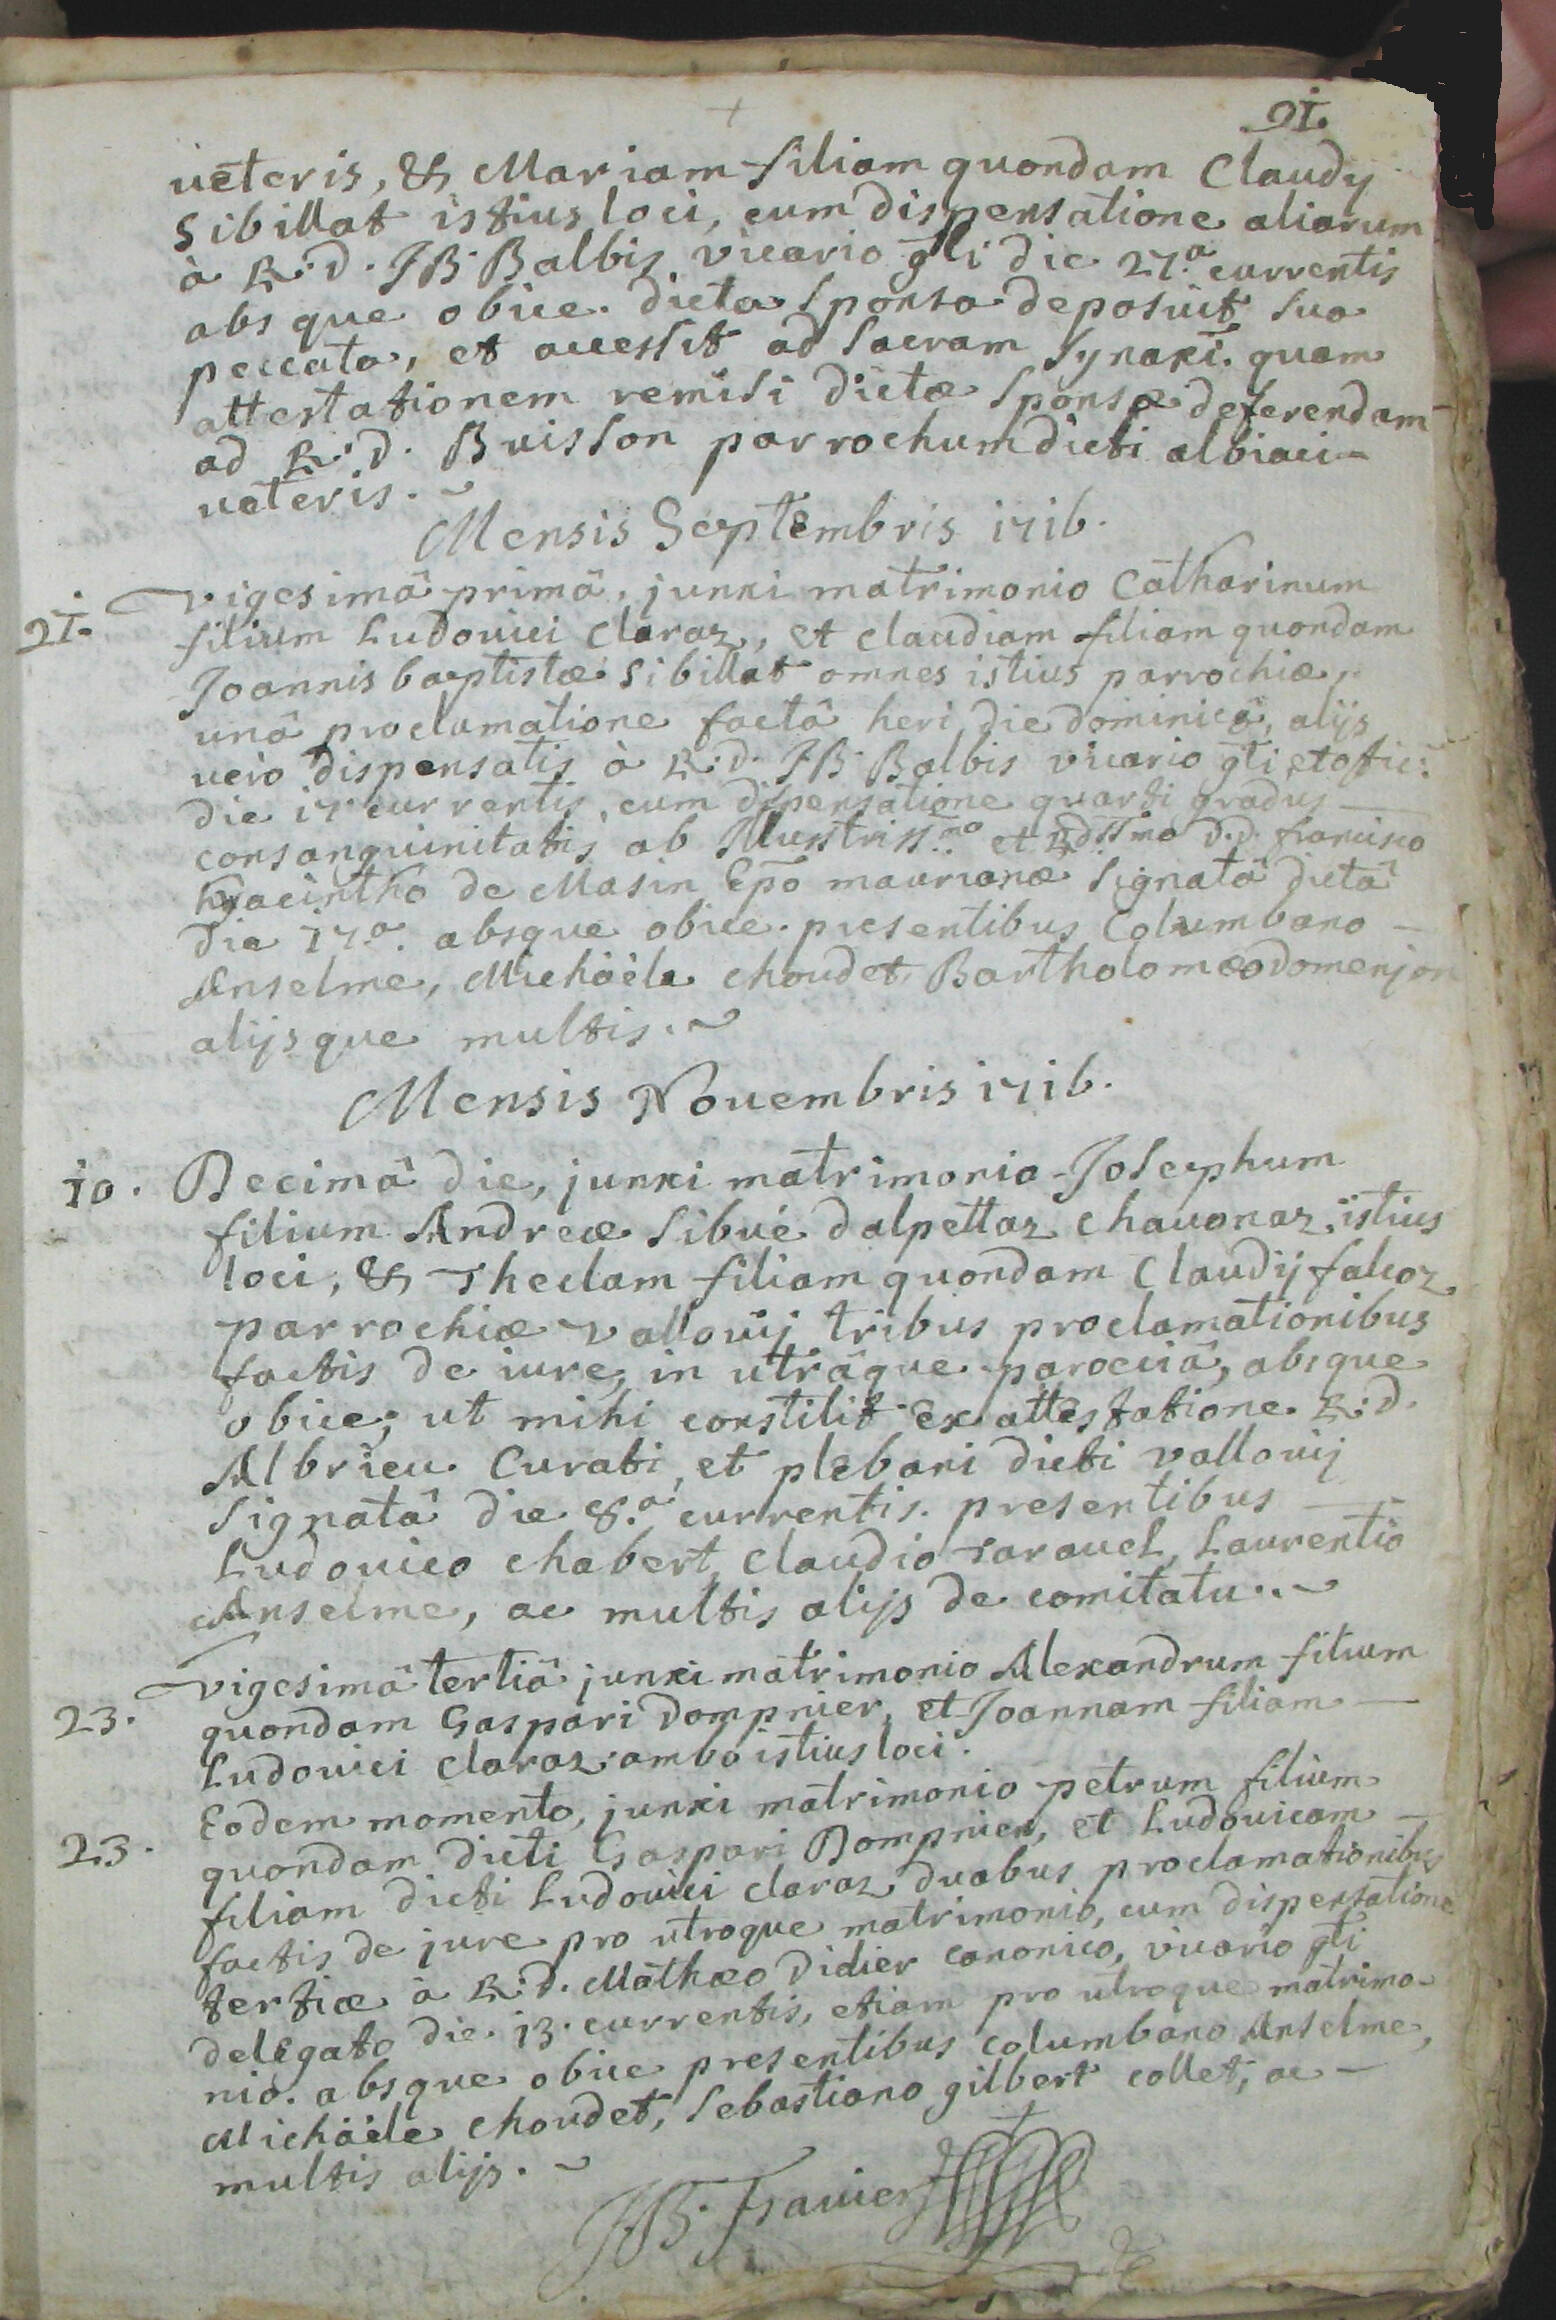 21.
ueteris, & Mariam filiam quondam Claudij
Sibillat istius loci, cum dispensatione aliarum
à R.d. JB. Balbis vicario gli die 27.a currentis
absque obice. dicta Sponsa deposuit sua
peccata, et accessit ad Sacram Synaxi. quam
attestationem remisi dictæ Sponsæ deferendam
ad R.d. Buisson parrochum dicti albiaci-
ueteris.
Mensis Septembris 1716.
21. Vigesimâ primâ, junxi matrimonio Catharinum
filium Ludouici Claraz, et claudiam filiam quondam
Joannis baptistæ Sibillat omnes istius parrochiæ,
unâ proclamatione factâ heri die dominicâ, alijs
uero dispensatis à R.d. JB. Balbis vicario gli et offi:
die 17 currentis, cum dispensatione quarti gradus
consanguinitatis ab Illustriss.mo et Rdss.mo d.d. francisco
hyacintho de Masin Epo maurianæ Signatâ dictâ
die 17.a absque obice. presentibus Columbano
Anselme, Michäele choudet, Bartholomæo domenjon
alijsque multis.
Mensis Nouembris 1716.
10. Decimâ die, junxi matrimonio Josephum
filium Andreæ Sibué dalpettaz chauonaz, istius
loci, & Theclam filiam quondam Claudij falcoz
parrochiæ vallouij tribus proclamationibus
factis de iure, in utrâque parociâ, absque
obice, ut mihi constitit ex attestatione R.d.
Albrieu Curati, et plebani dicti vallouij
Signatâ die 8.a currentis. presentibus
Ludouico chabert, claudio rarauel, Laurentio
Anselme, ac multis alijs de comitatu.
23. Vigesimâ tertiâ junxi matrimonio Alexandrum filium
quondam Gaspari Dompnier, et Joannam filiam
Ludouici claraz ambo istius loci.
23. Eodem momento, junxi matrimonio petrum filium
quondam dicti Gaspari Dompnier, et Ludouicam
filiam dicti Ludouici claraz duabus proclamationibus
factis de jure pro utroque matrimonio, cum dispensatione
tertiæ à R.d. Mathæo Didier canonico, vicario gli
delegato die. 13. currentis, etiam pro utroque matrimo-
nio. absque obice presentibus columbano Anselme,
Michäele choudet, Sebastiano gilbert collet, ac
multis alijs.